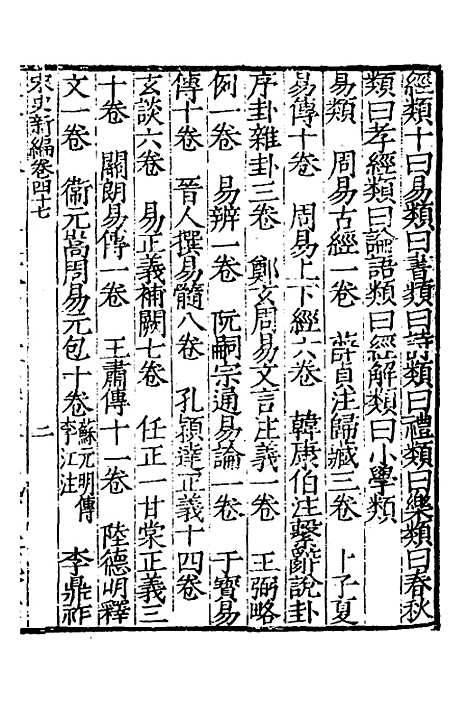 經類十曰易類曰書類曰詩類曰禮類曰樂類曰春秋
類曰孝經類曰論語類曰經解類曰小學類
易類　周易古經一卷　薛貞注歸藏三卷　卜子夏
易傳十卷　周易上下經六卷　韓康伯注繫辭說卦
序卦雜卦三卷　鄭玄周易文言注義一卷　王弼略
例一卷　易辨一卷　阮嗣宗通易論一卷　于寳易
傳十卷　晉人撰易髓八卷　孔穎達正義十四卷
玄談六卷　易正義補闕七卷　任正一甘棠正義三
十卷　關朗易傳一卷　王肅傳十一卷　陸德明釋
文一卷　衞元嵩周易元包十卷蘇元明傳李江注　李鼎祚
宋史新編卷四十七　二